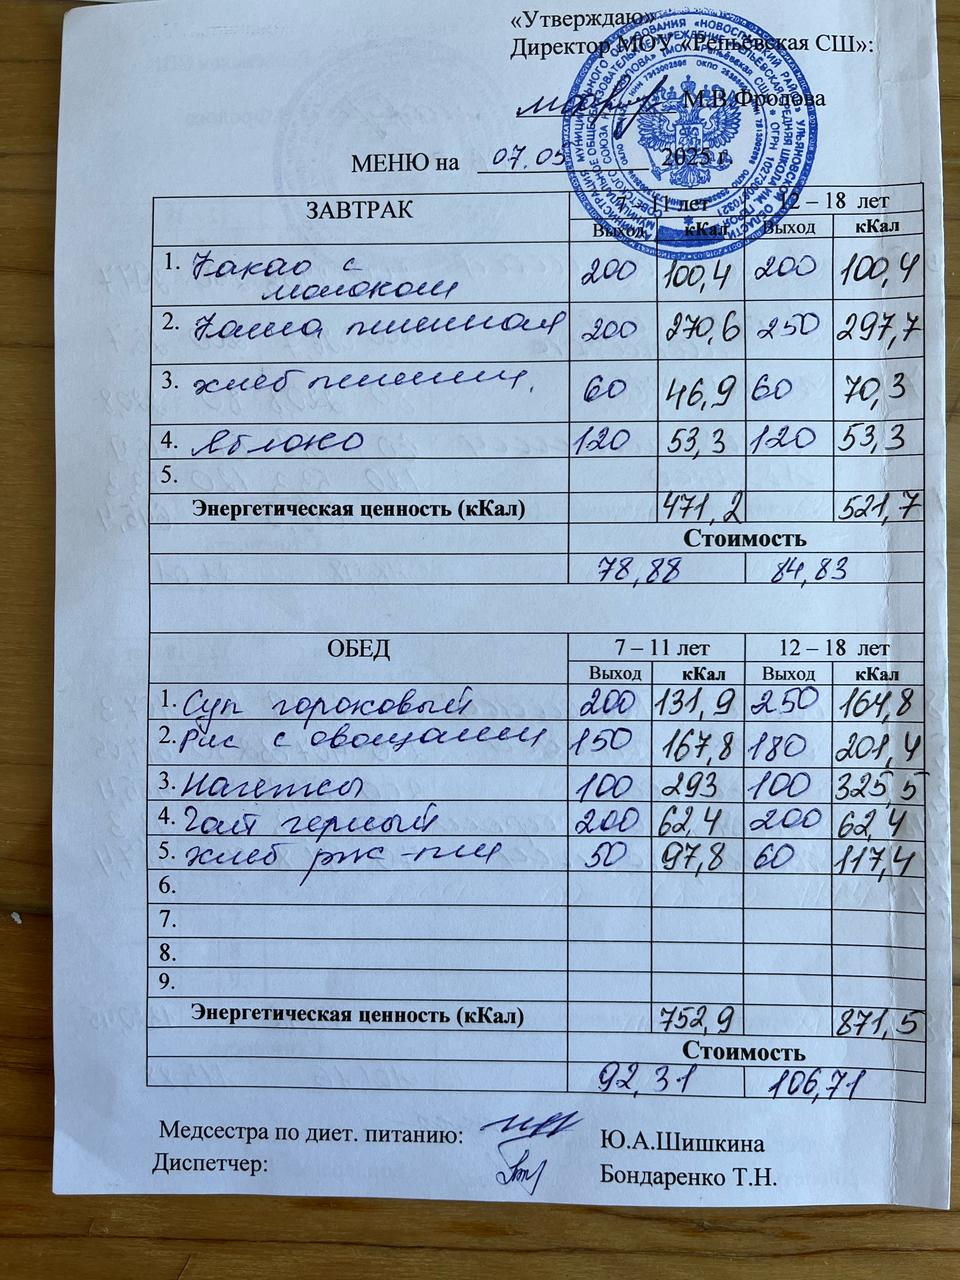 «Утверждаю»
Директор МОУ «Репьёвская СШ»:
М.В.Фролова
МЕНЮ на 07.05 2025 г.
ЗАВТРАК 7 – 11 лет 12 – 18 лет
Выход кКал Выход кКал
1. Какао с молоком 200 100,4 200 100,4
2. Каша пшенная 200 270,6 250 297,7
3. хлеб пшенич. 60 46,9 60 70,3
4. Яблоко 120 53,3 120 53,3
5.
Энергетическая ценность (кКал) 471,2 521,7
Стоимость
78,88 84,83
ОБЕД 7 – 11 лет 12 – 18 лет
Выход кКал Выход кКал
1. Суп гороховый 200 131,9 250 164,8
2. Рис с овощами 150 167,8 180 201,4
3. Нагетсы 100 293 100 325,5
4. Чай черный 200 62,4 200 62,4
5. хлеб рж-пш 50 97,8 60 117,4
6.
7.
8.
9.
Энергетическая ценность (кКал) 752,9 871,5
Стоимость
92,31 106,71
Медсестра по диет. питанию: Ю.А.Шишкина
Диспетчер: Бондаренко Т.Н.